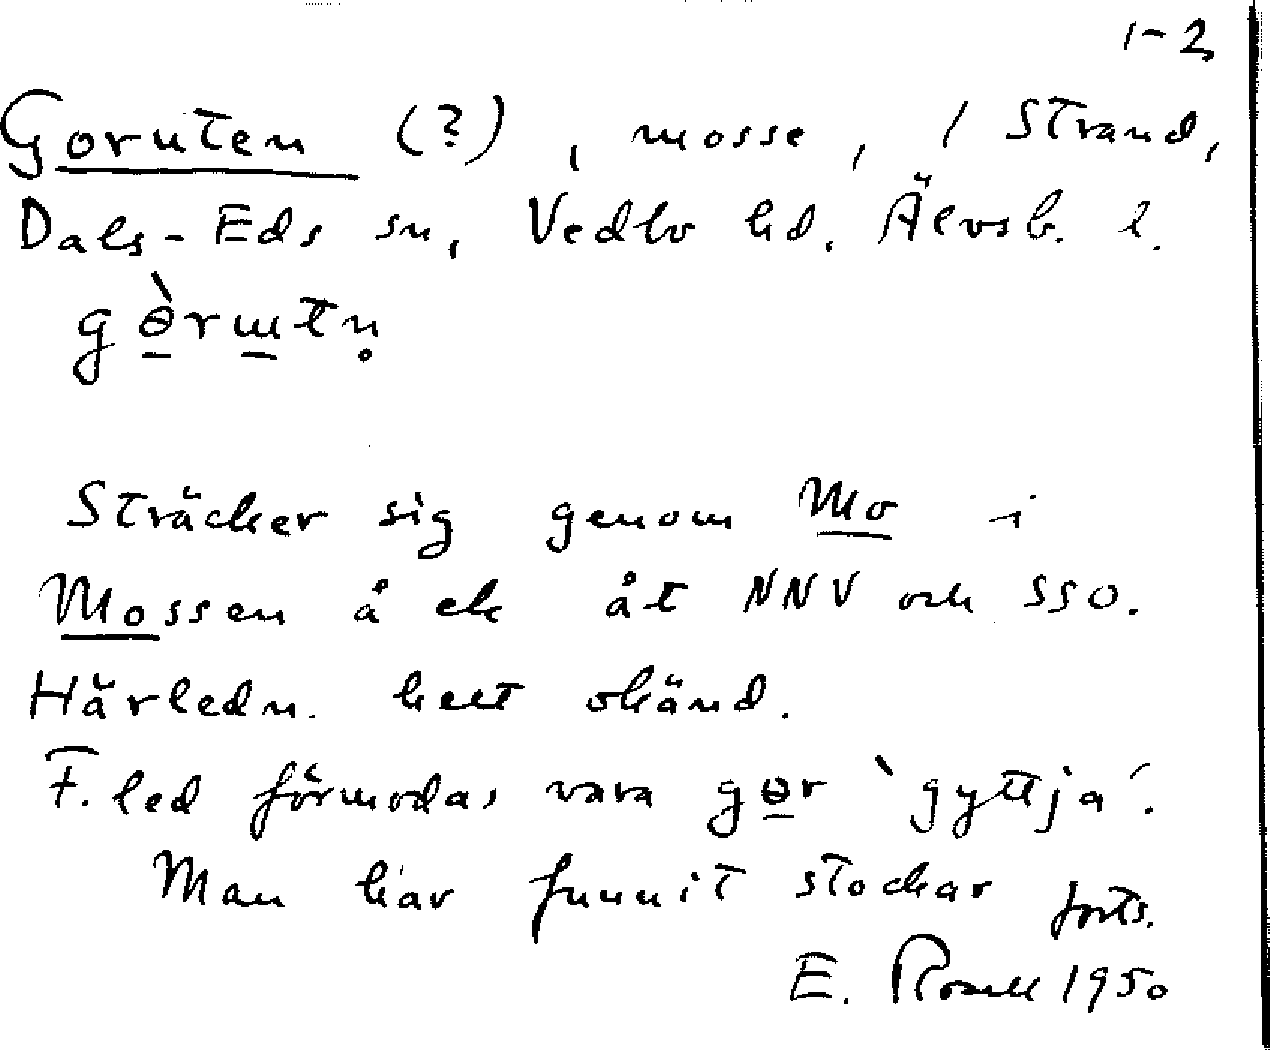 1-2
Goruten (?), mosse, / Strand,
Dals-Eds sn, Vedbo hd. Älvsb. l.
gɵ̀rɯtn̥
Sträcker sig genom Mo i
Mossen å ek åt NNV och SSO.
Härledn. helt okänd.
F. led förmodas vara gɵr `gyttja´.
Man har funnit stockar forts.
E. Rosell 1950